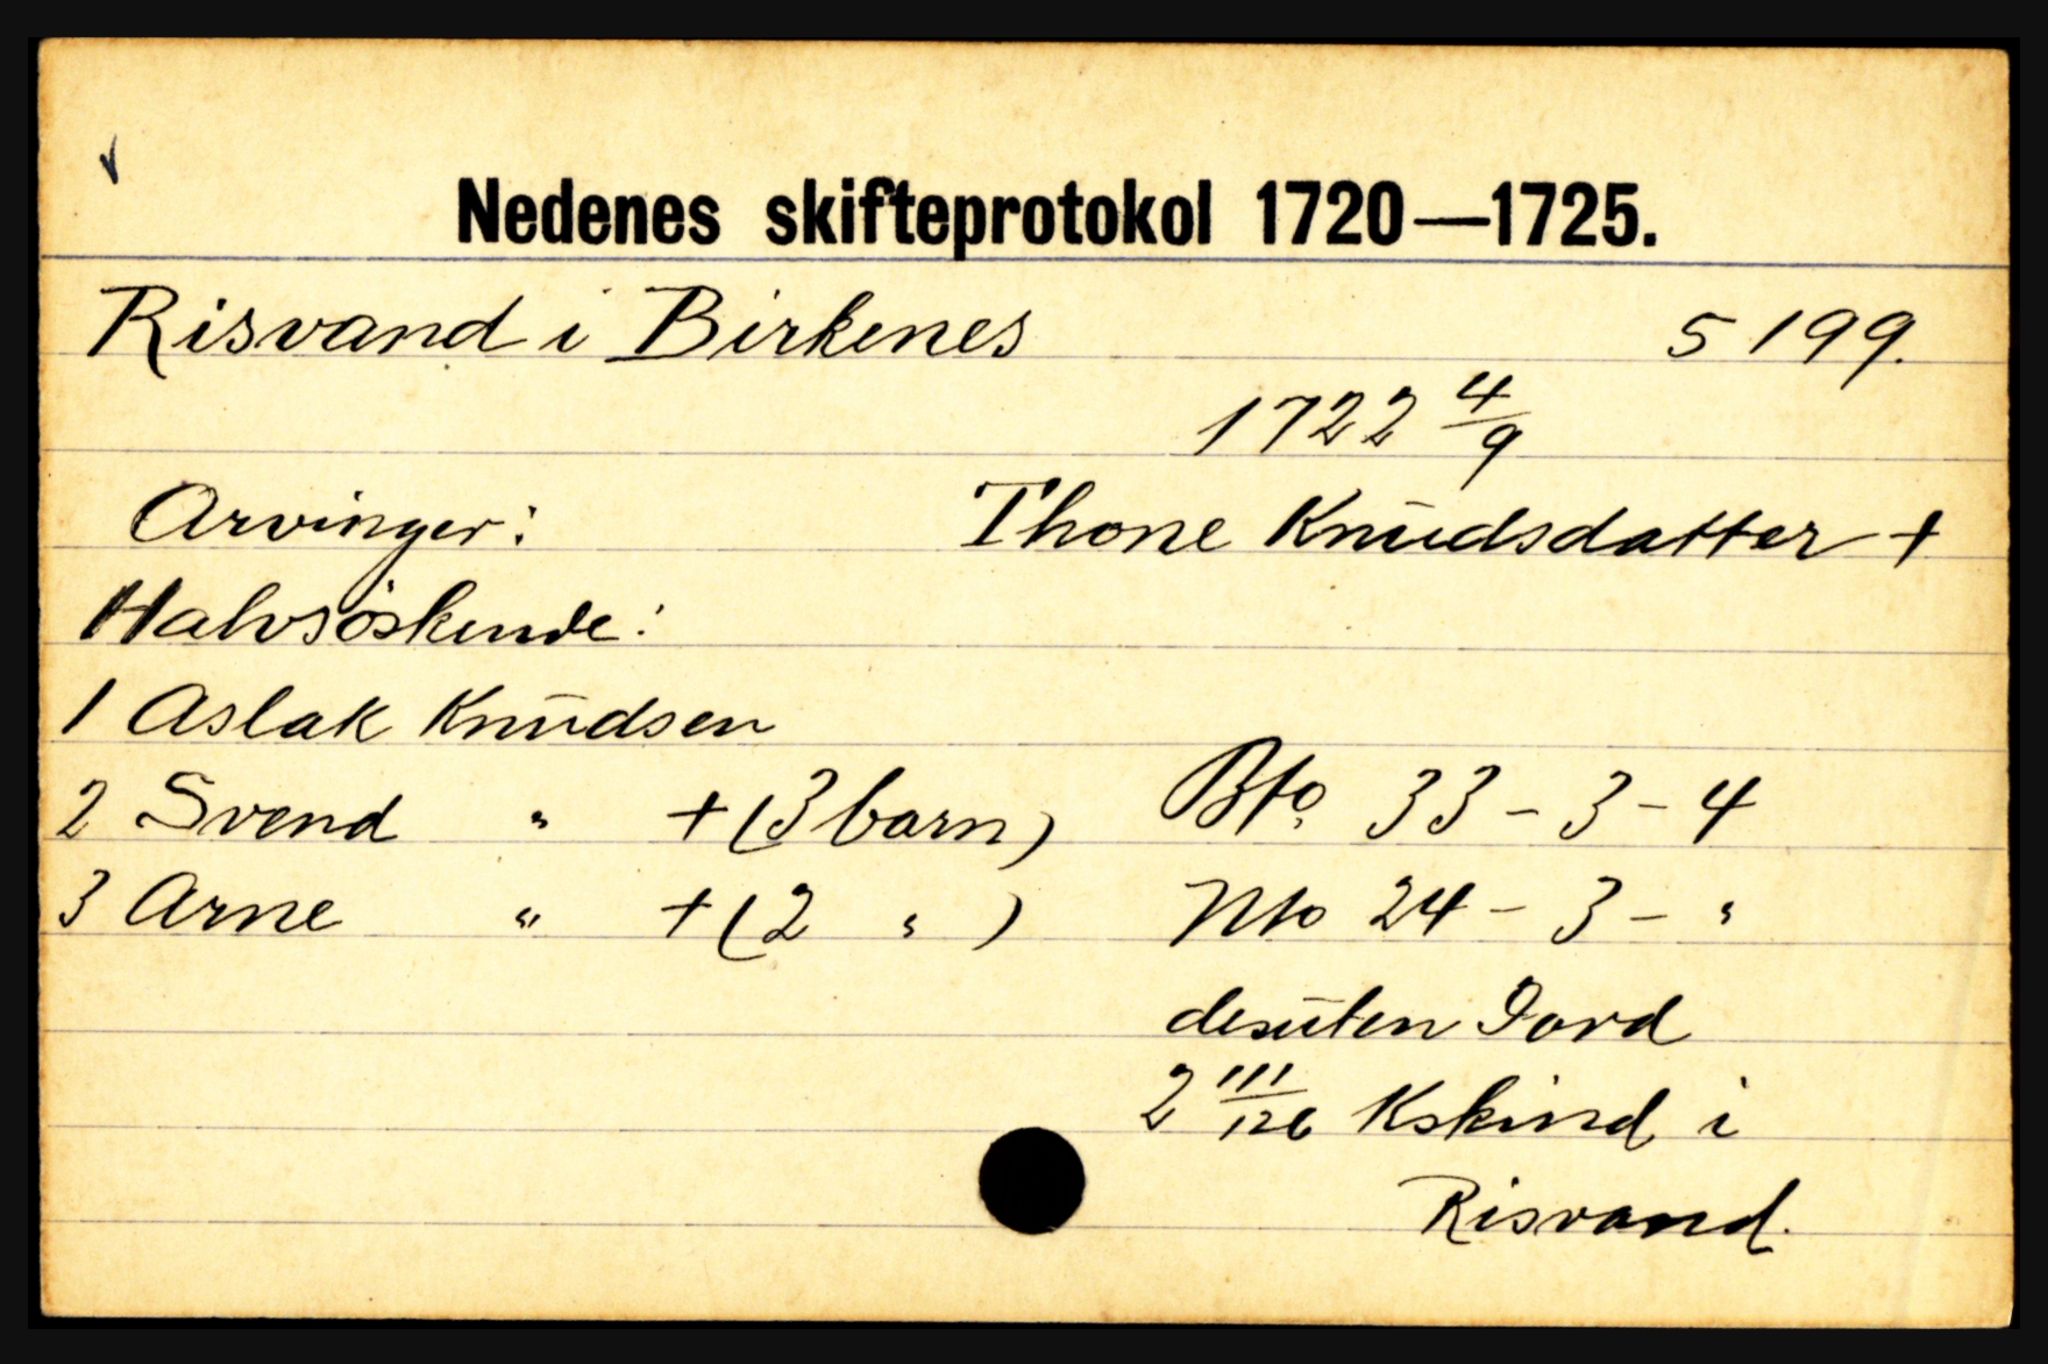 Nedenes skifteprotokol 1720—1725.
Risvand i Birkenes 5 199.
1722 4/9
Arvinger: Thone Knudsdatter +
Halvsöskende:
1 Aslak Knudsen
2 Svend " + (3 barn) Bto. 33 - 3 - 4
3 Arne " + (2 " ) Nto 24 - 3 - "
desuten Jord
2 111/126 Kskind i
Risvand.